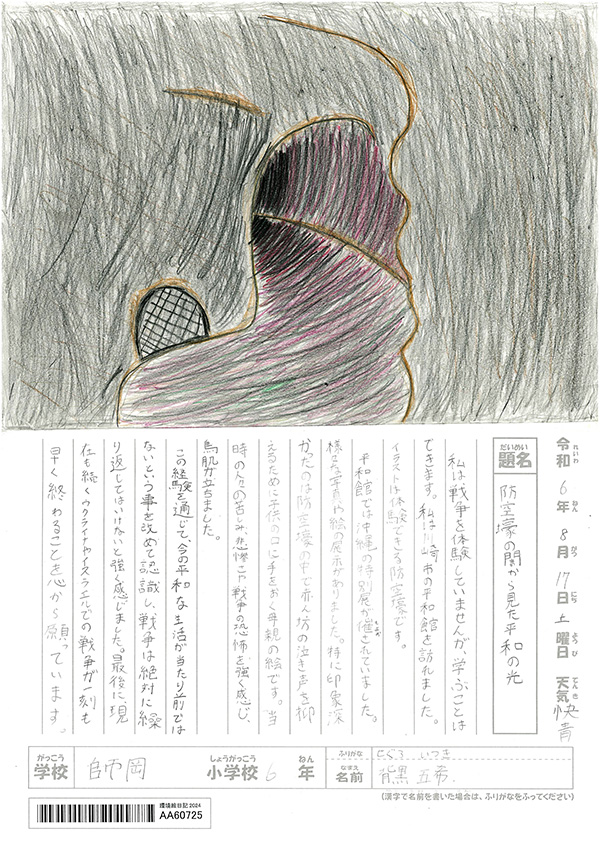 令和6年8月17日土曜日 天気快青
れいわ ねん がつ にち ようび てんき
だいめい
題名
防空壕の闇から見た平和の光
私は戦争を体験していませんが、学ぶことは
できます。私は川崎市の平和館を訪れました。
イラストは体験できる防空壕です。
平和館では沖縄の特別展が催されていました。
様々な写真や絵の展示がありました。特に印象深
かったのは防空壕の中で赤ん坊の泣き声を抑
えるために子供の口に手をおく母親の絵です。当
時の人々の苦しみ、悲惨さや戦争の恐怖を強く感じ、
鳥肌が立ちました。
この経験を通じて、今の平和な生活が当たり前では
ないという事を改めて認識し、戦争は絶対に繰
り返してはいけないと強く感じました。最後に現
在も続くウクライナやイスラエルでの戦争が一刻も
早く終わることを心から願っています。
がっこう しょうがっこう ねん
学校 師岡 小学校 6年
ふりがな せぐろ いつき
なまえ
名前 背黒 五希.
(漢字で名前を書いた場合は、ふりがなをふってください)
環境絵日記2024
AA60725